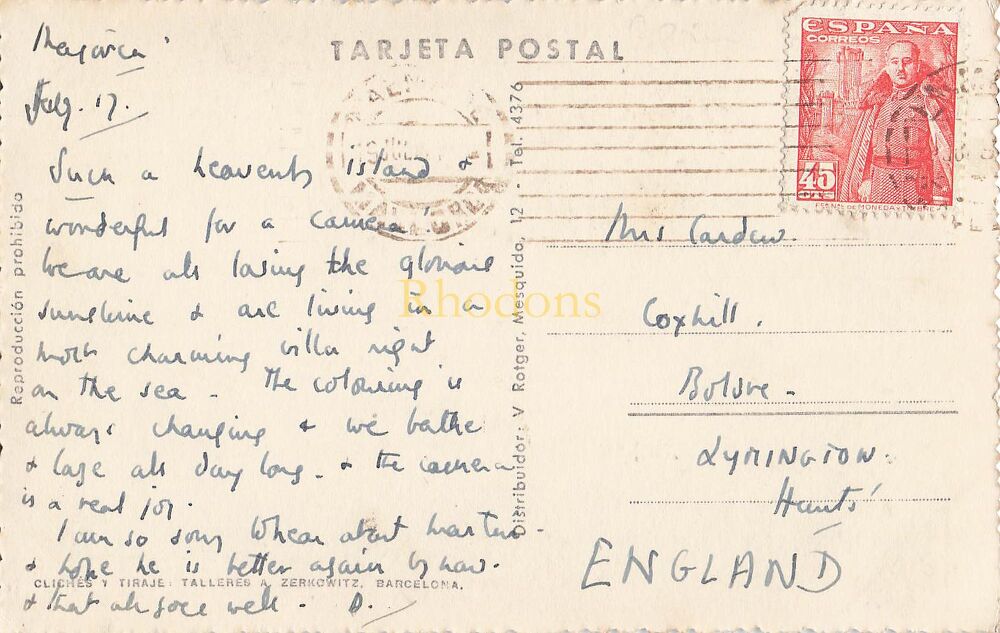 TARJETA POSTAL
Majorca
July. 17.
Such a heavenly island &
wonderful for a camera!
We are all loving the glorious
sunshine & are living in a
most charming villa right
on the sea - The colouring is
always changing & we bathe
& laze all day long - & the camera
is a real joy.
I am so sorry to hear about Martin -
& hope he is better again by now.
& that all goes well - D.
CLICHÉS Y TIRAJE: TALLERES A. ZERKOWITZ, BARCELONA.
Reproducción prohibida
Distribuidor: V Rotger, Mesquida, 12 - Tel. 4376
ESPAÑA
CORREOS
45
CTS
Mrs Cardew.
Coxhill.
Boldre -
LYMINGTON.
Hants
ENGLAND
Rhodons